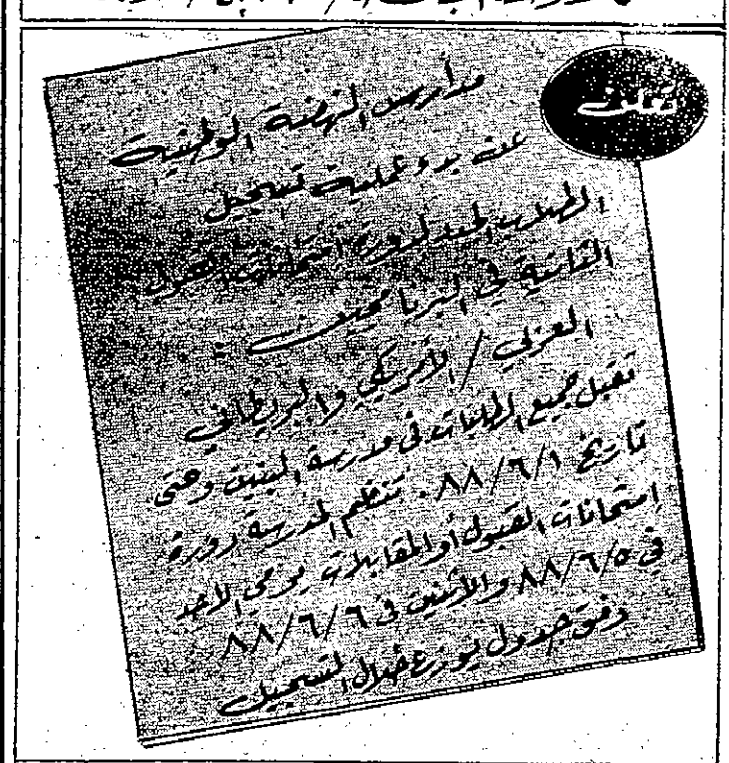 تعلن
مدارس النهضة الوطنية
عن بدء عملية تسجيل
الطلاب الجدد لدورة امتحانات القبول
الثانية في البرنامجين
العربي / الأمريكي والبريطاني
تقبل جميع الطلبات في مدرسة البنين وحتى
تاريخ ٨٨/٦/١. تنظم المدرسة دورة
امتحانات القبول أو المقابلات يومي الأحد
في ٨٨/٦/٥ والأثنين في ٨٨/٦/٦
وفق جدول يوزع خلال التسجيل